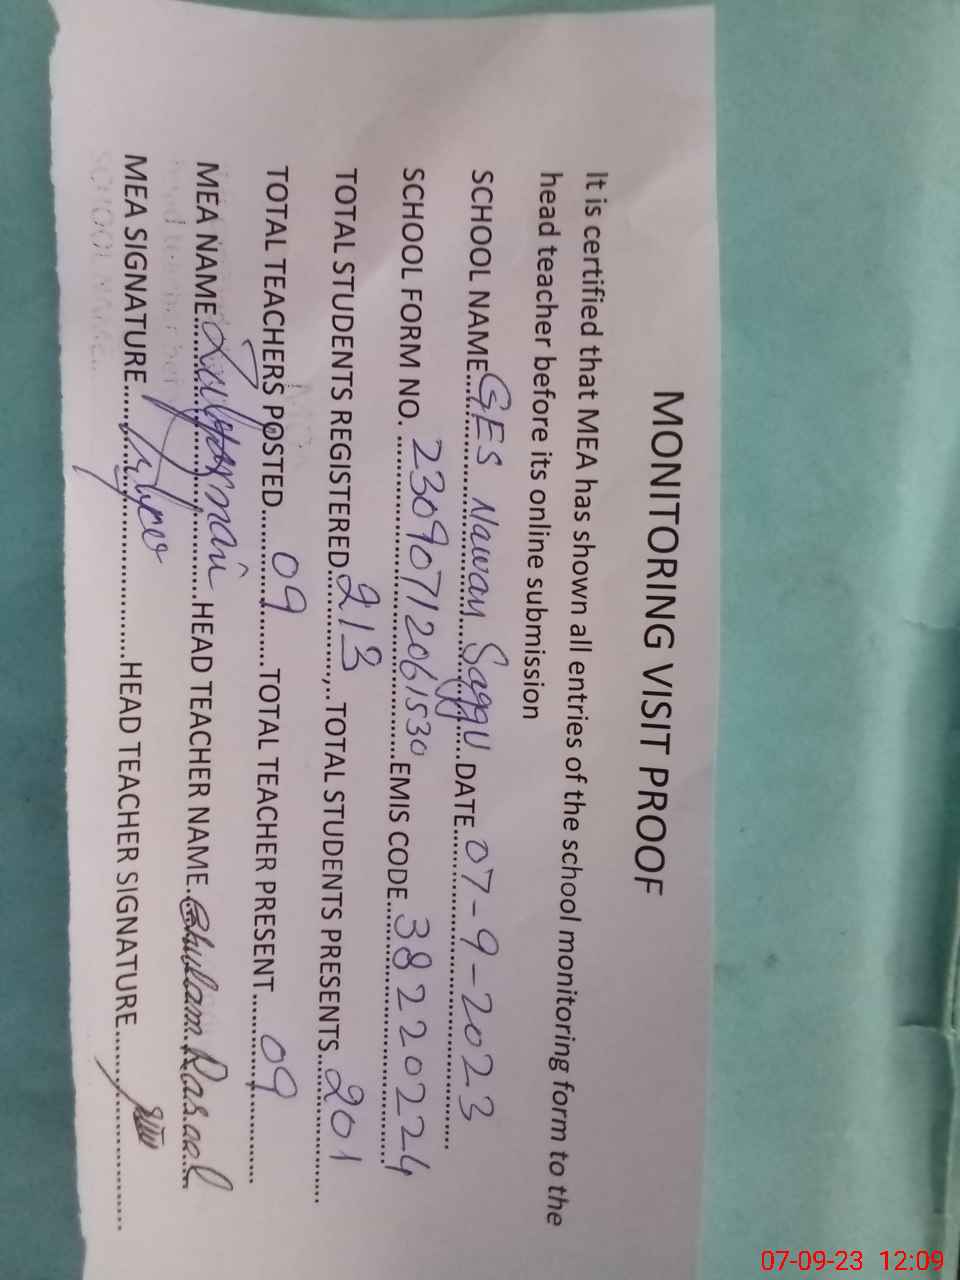 MONITORING VISIT PROOF
It is certified that MEA has shown all entries of the school monitoring form to the
head teacher before its online submission
SCHOOL NAME...GES Nawan Saggu...DATE...07-9-2023
SCHOOL FORM NO. ...23090712061530...EMIS CODE...38220224
TOTAL STUDENTS REGISTERED...213...TOTAL STUDENTS PRESENTS...201
TOTAL TEACHERS POSTED...09...TOTAL TEACHER PRESENT...09
MEA NAME...HEAD TEACHER NAME...Ghulam Rasool
MEA SIGNATURE...HEAD TEACHER SIGNATURE...
07-09-23 12:09